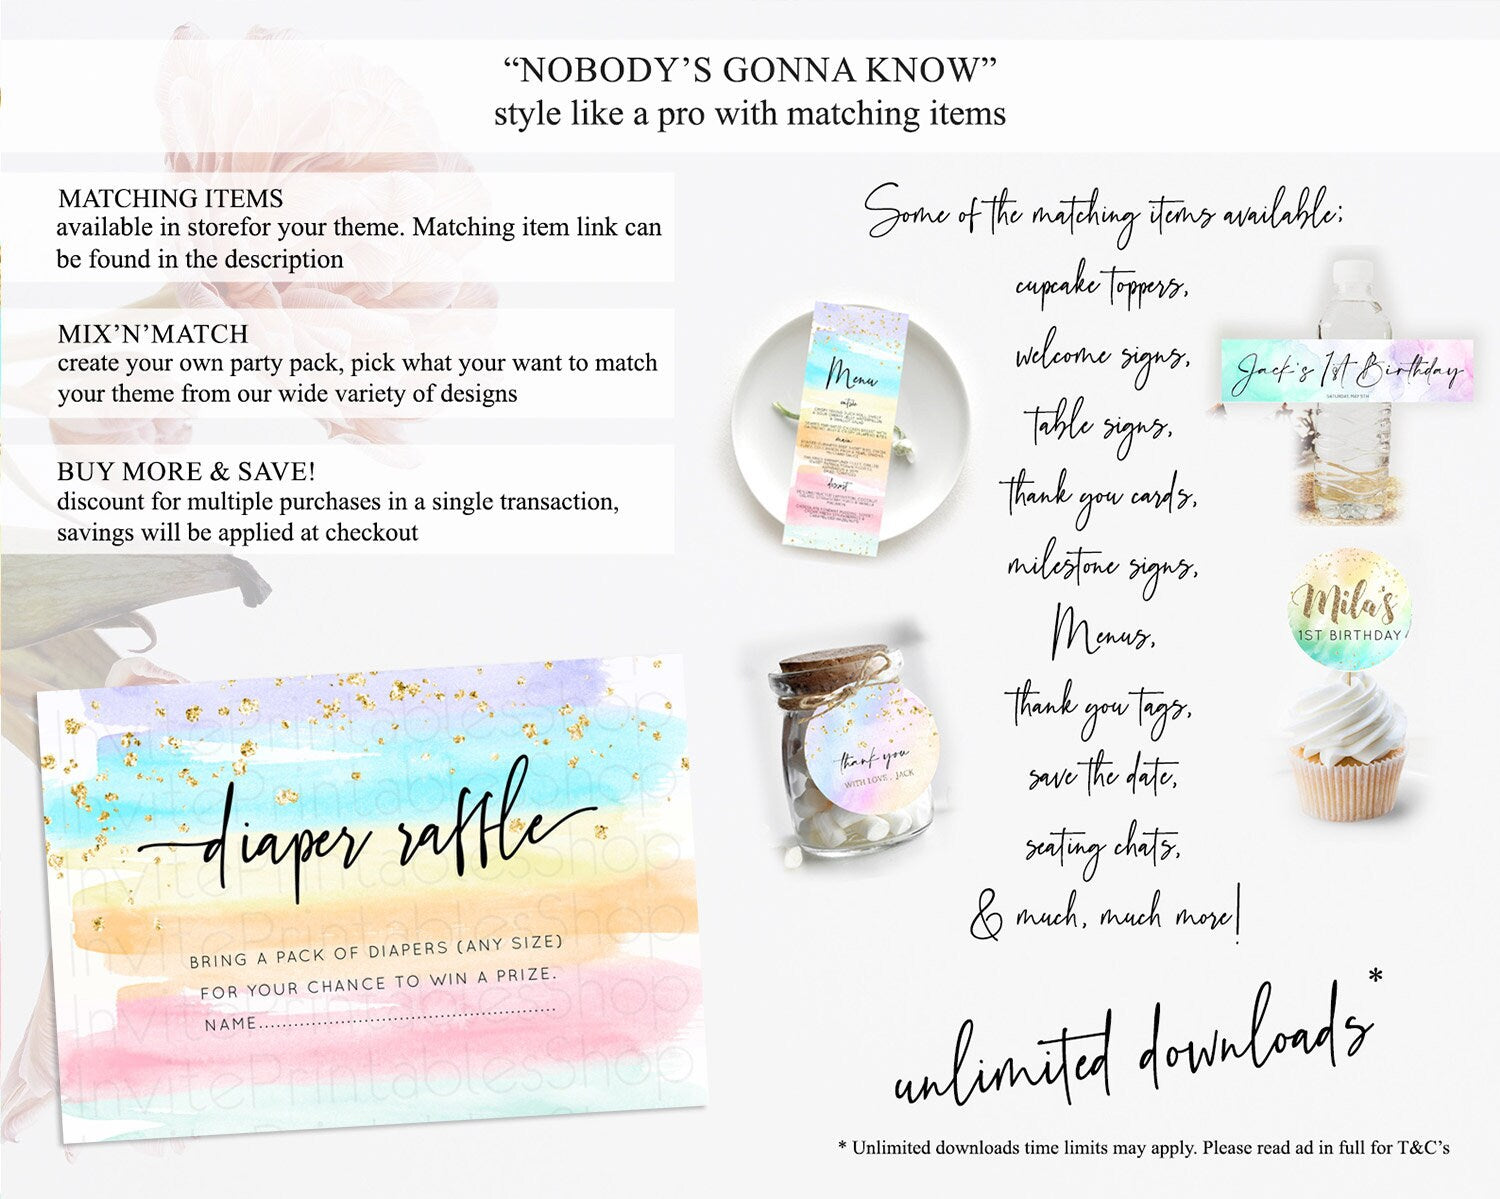 “NOBODY’S GONNA KNOW”
style like a pro with matching items
MATCHING ITEMS
available in storefor your theme. Matching item link can
be found in the description
MIX’N’MATCH
create your own party pack, pick what your want to match
your theme from our wide variety of designs
BUY MORE & SAVE!
discount for multiple purchases in a single transaction,
savings will be applied at checkout
diaper raffle
BRING A PACK OF DIAPERS (ANY SIZE)
FOR YOUR CHANCE TO WIN A PRIZE.
NAME..................................................
InvitePrintablesShop
Some of the matching items available;
cupcake toppers,
welcome signs,
table signs,
thank you cards,
milestone signs,
Menus,
thank you tags,
save the date,
seating chats,
& much, much more!
Menu
entrée
main
dessert
thank you
WITH LOVE, JACK
Jack's 1st Birthday
SATURDAY, MAY 5TH
Mila's
1ST BIRTHDAY
unlimited downloads*
* Unlimited downloads time limits may apply. Please read ad in full for T&C’s